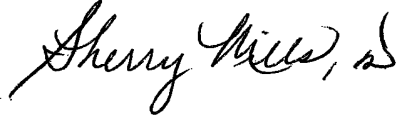 Sherry Mills,